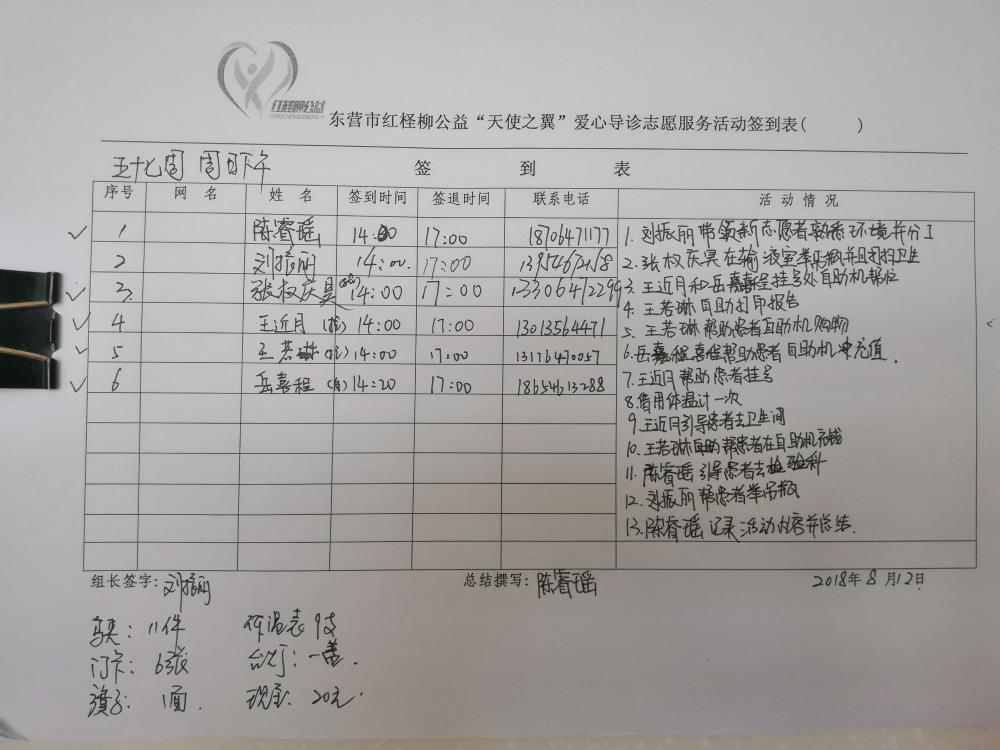 红柽柳公益
东营市红柽柳公益“天使之翼”爱心导诊志愿服务活动签到表( )
五十七周 周日下午
签 到 表
序号 网 名 姓 名 签到时间 签退时间 联系电话 活 动 情 况
1 陈睿瑶 14:00 17:00 18706471177
2 刘振丽 14:00 17:00
3 张权庆昊 14:00 17:00 13306472299
4 王近月 14:00 17:00 13013564471
5 王若琳 14:00 17:00 13176470057
6 岳嘉程 14:20 17:00 18654613288
1. 刘振丽带领新志愿者熟悉环境并分工
2. 张权庆昊在输液室举吊瓶并且打扫卫生
3. 王近月和岳嘉程挂号处自助机帮忙
4. 王若琳自助打印报告
5. 王若琳帮助患者自助机购物
6. 岳嘉程帮助患者自助机充值.
7. 王近月帮助患者挂号
8. 借用体温计一次
9. 王近月引导患者去卫生间
10. 王若琳帮患者在自助机充钱
11. 陈睿瑶引导患者去检验科
12. 刘振丽帮患者举吊瓶
13. 陈睿瑶记录活动内容并总结.
组长签字: 刘振丽 总结撰写: 陈睿瑶 2018年8月12日
马夹: 11件 体温表 9支
门卡: 6张 台灯: 一盏.
旗子: 1面. 现金: 20元.